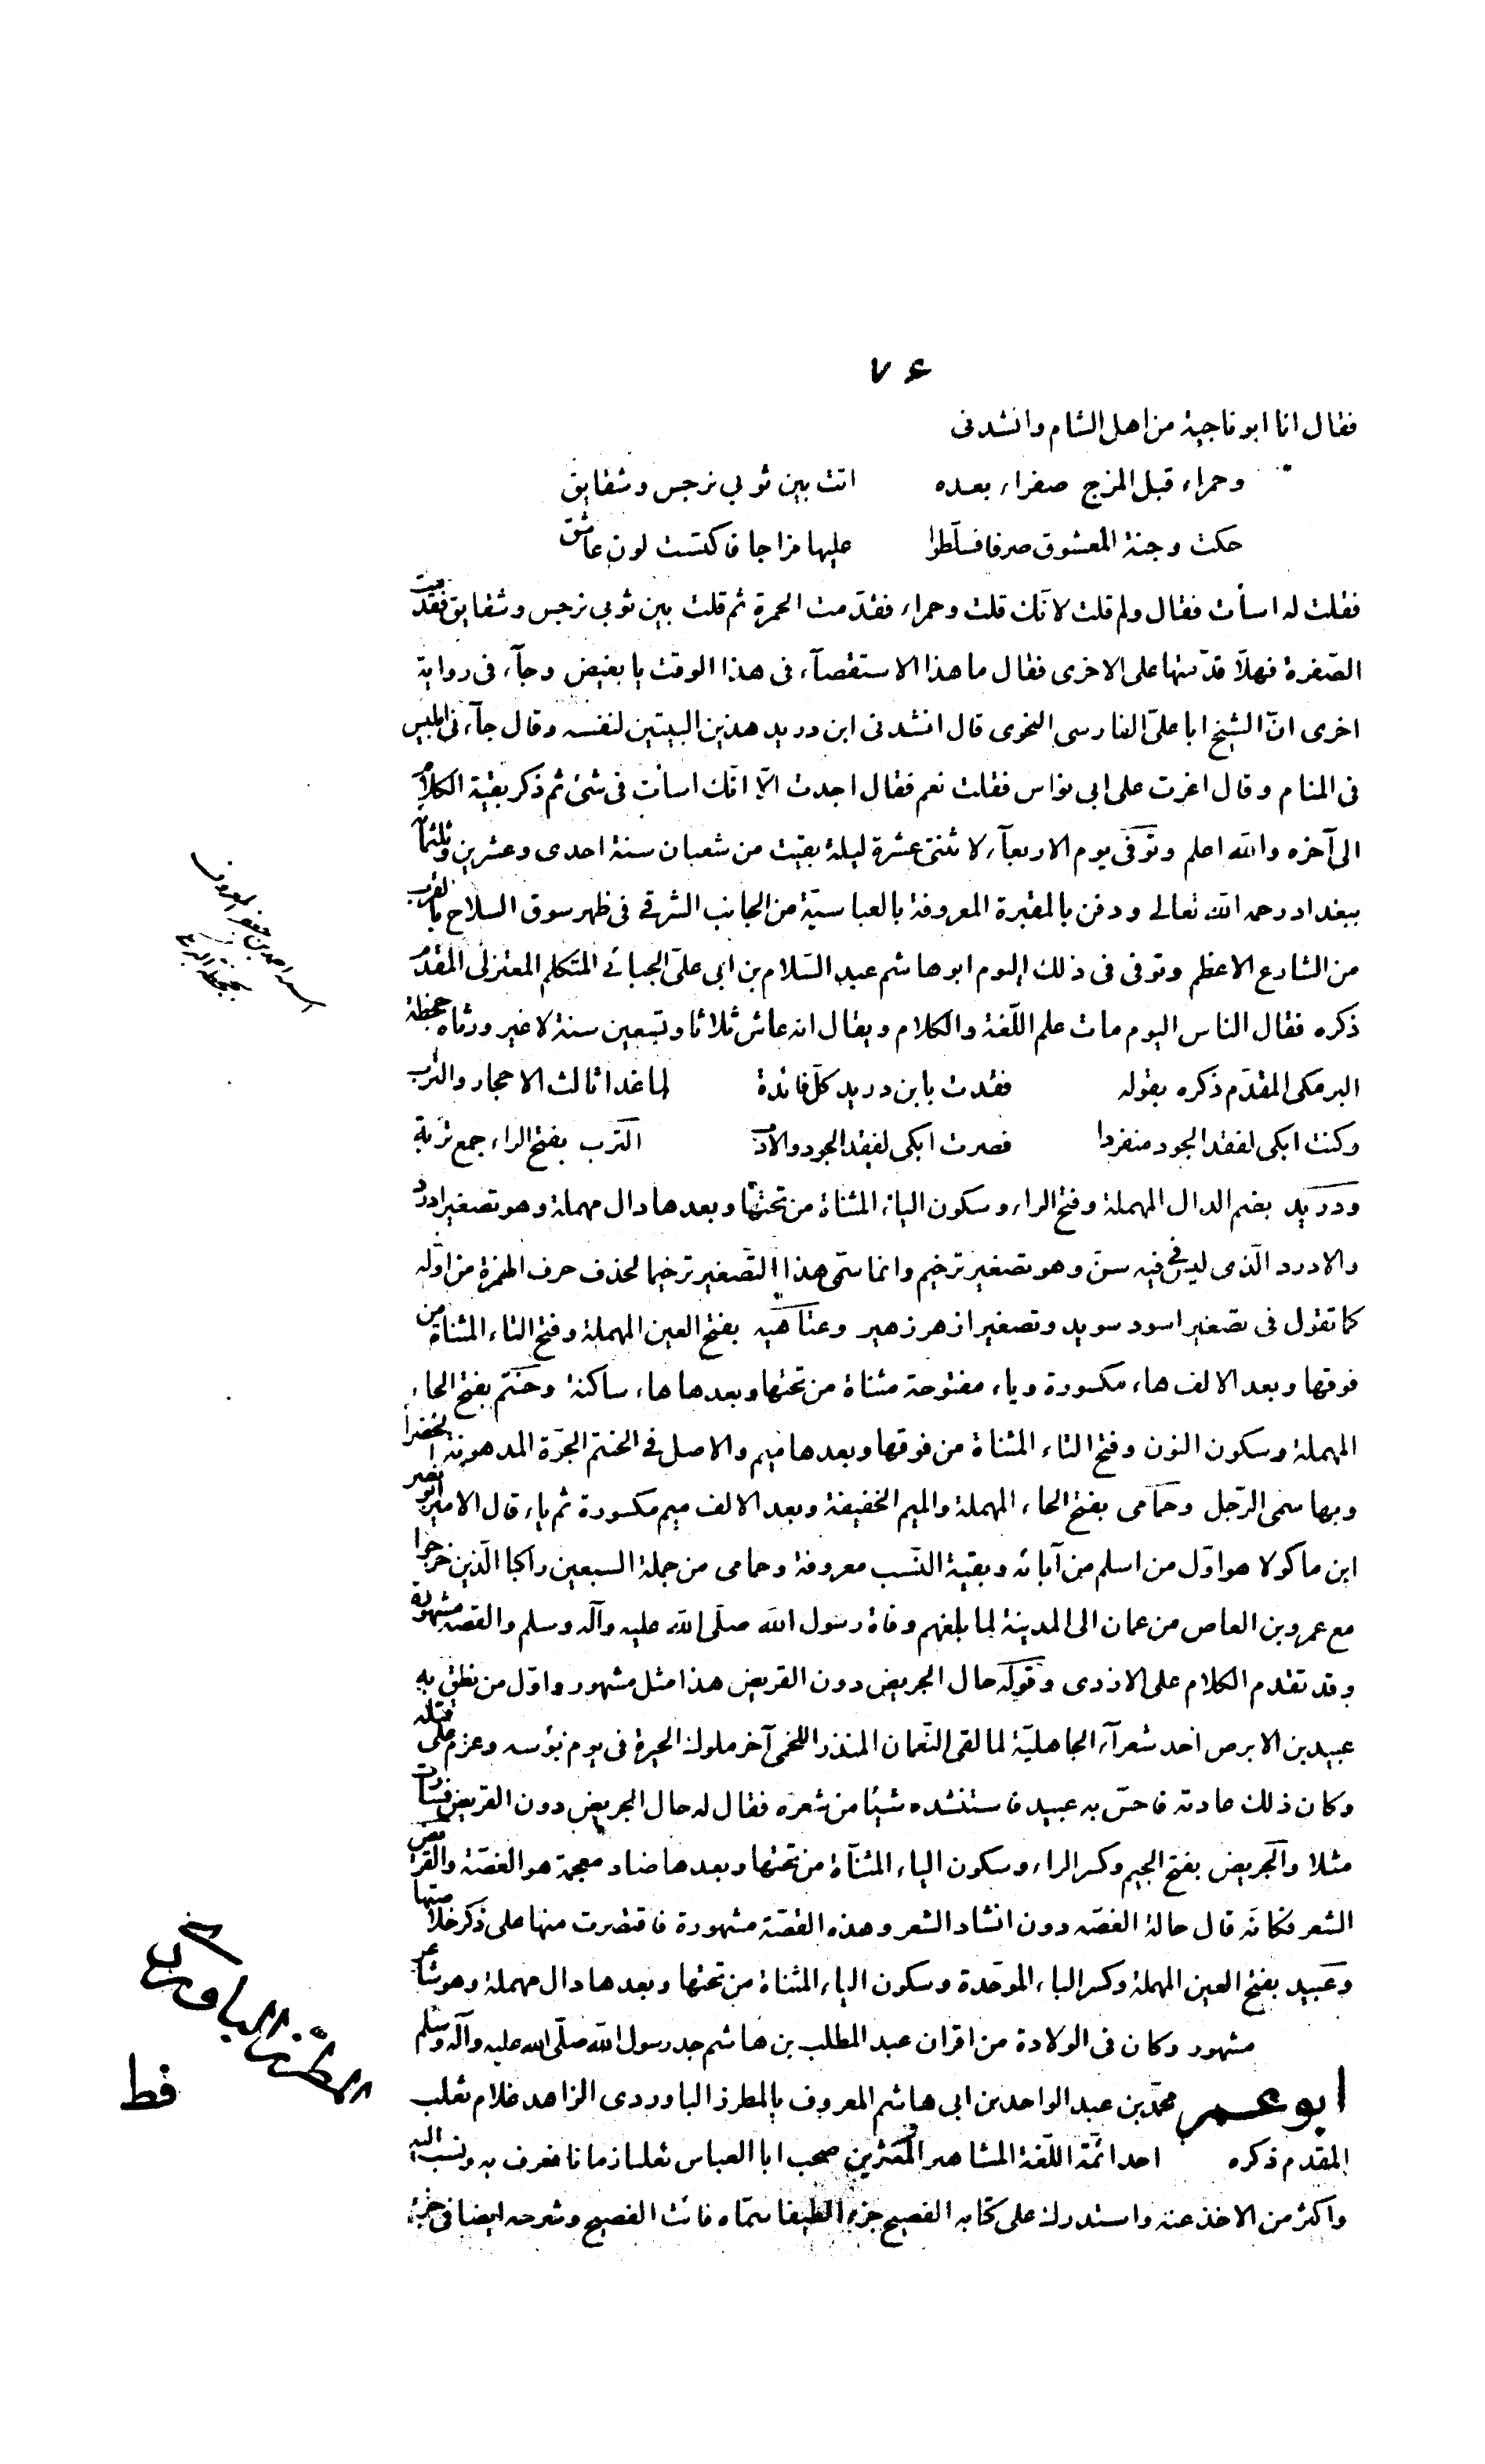 ٧۶
فقال انا ابو ناجية من اهل الشام وانشدنى
وحمراء قبل المزج صفراء بعده اتت بين ثوبي نرجس وشقايق
حكت وجنة المعشوق صرفا فسلّطوا عليها مزاجا فاكتست لون عاشق
فقلت له اسأت فقال ولم قلت لانّك قلت وحمراء فقدّمت الحمرة ثم قلت بين ثوبي نرجس وشقايق فقدمت
الصّفرة فهلّا قدّمتها على الاخرى فقال ما هذا الاستقصآء فى هذا الوقت يا بغيض وجآء فى رواية
اخرى انّ الشيخ ابا علىّ الفارسى النحوى قال انشدنى ابن دريد هذين البيتين لنفسه وقال جآءنى ابليس
فى المنام وقال اغرت على ابى نواس فقلت نعم فقال اجدت الّا انّك اسأت فى شئ ثم ذكر بقية الكلام
الى آخره والله اعلم وتوفى يوم الاربعآء لاثنتى عشرة ليلة بقيت من شعبان سنة احدى وعشرين وثلثمائة
ببغداد رحمه الله تعالى ودفن بالمقبرة المعروفة بالعباسيّة من الجانب الشرقى فى ظهر سوق السلاح بالقرب
من الشارع الاعظم وتوفى فى ذلك اليوم ابو هاشم عبد السّلام بن ابى علىّ الجبائى المتكلم المعتزلى المقدّم
ذكره فقال الناس اليوم مات علم اللّغة والكلام ويقال انه عاش ثلاثا وتسعين سنة لا غير ورثاه جحظة
البرمكى المقدّم ذكره بقوله فقدت بابن دريد كلّ فائدة لما غدا ثالث الاحجار والترب
وكنت ابكى لفقد الجود منفردا فصرت ابكى لفقد الجود والادب الترب بفتح الراء جمع تربة
ودريد بضم الدال المهملة وفتح الراء وسكون الياء المثناة من تحتها وبعدها دال مهملة وهو تصغير ادرد
والادرد الّذى ليس فى فيه سنّ وهو تصغير ترخيم وانما سمّى هذا التّصغير ترخيما لحذف حرف الهمزة من اوّله
كما تقول فى تصغير اسود سويد وتصغير ازهر زهير وعتاهيه بفتح العين المهملة وفتح التاء المثناة من
فوقها وبعد الالف هاء مكسورة وياء مفتوحة مثناة من تحتها وبعدها هاء ساكنة وحنتم بفتح الحاء
المهملة وسكون النون وفتح التاء المثناة من فوقها وبعدها ميم والاصل فى الحنتم الجرّة المدهونة الخضراء
وبها سمى الرّجل وحمامى بفتح الحاء المهملة والميم الخفيفة وبعد الالف ميم مكسورة ثم ياء قال الامير ابو نصر
ابن ماكولا هو اوّل من اسلم من آبائه وبقية النّسب معروفة وحمامى من جملة السبعين راكبا الّذين خرجوا
مع عمرو بن العاص من عمان الى المدينة لما بلغهم وفاة رسول الله صلّى الله عليه وآله وسلم والقصة مشهورة
وقد تقدم الكلام على الازدى وقوله حال الجريض دون القريض هذا مثل مشهور واوّل من نطق به
عبيد بن الابرص احد شعرآء الجاهليّة لما لقى النّعمان المنذر اللخمى آخر ملوك الحيرة فى يوم بؤسه وعزم على قتله
وكان ذلك عادته فاحسّ به عبيد فاستنشده شيئا من شعره فقال له حال الجريض دون القريض فسارت
مثلا والجريض بفتح الجيم وكسر الراء وسكون الياء المثنّاة من تحتها وبعدها ضاد معجمة هو الغصّة والقريض
الشعر فكانّه قال حالة الغصّه دون انشاد الشعر وهذه القصّة مشهورة فاقتصرت منها على ذكر خلاصتها
وعبيد بفتح العين المهملة وكسر الباء الموحّدة وسكون الياء المثناة من تحتها وبعدها دال مهملة وهو شاعر
مشهور وكان فى الولادة من اقران عبد المطلب بن هاشم جد رسول الله صلّى الله عليه وآله وسلم
ابو عمر محمّد بن عبد الواحد بن ابى هاشم المعروف بالمطرز الباوردى الزاهد غلام ثعلب
المقدم ذكره احد ائمّة اللّغة المشاهير المكثرين صحب ابا العباس ثعلبا زمانا فعرف به ونسب اليه
واكثر من الاخذ عنه واستدرك على كتابه الفصيح جزءا لطيفا سمّاه فائت الفصيح وشرحه ايضا فى جزء
المطرز الباوردى
قط